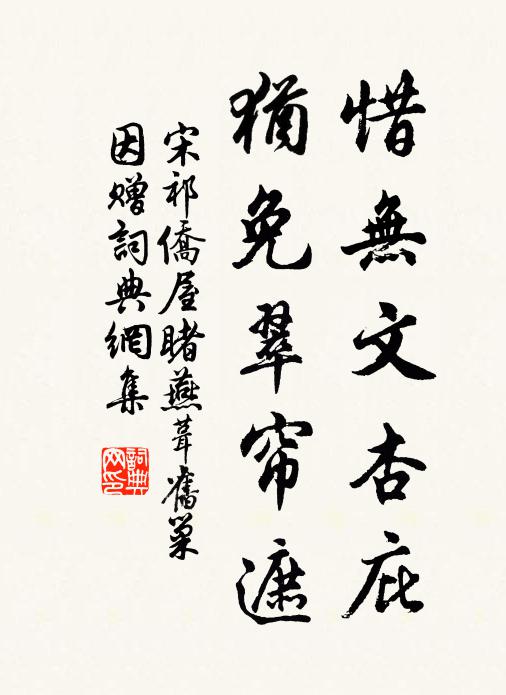 惜無文杏庇
猶免翠帘遮
宋祁僑屋睹燕葺舊巢
因贈詞典網集
詞典
网印